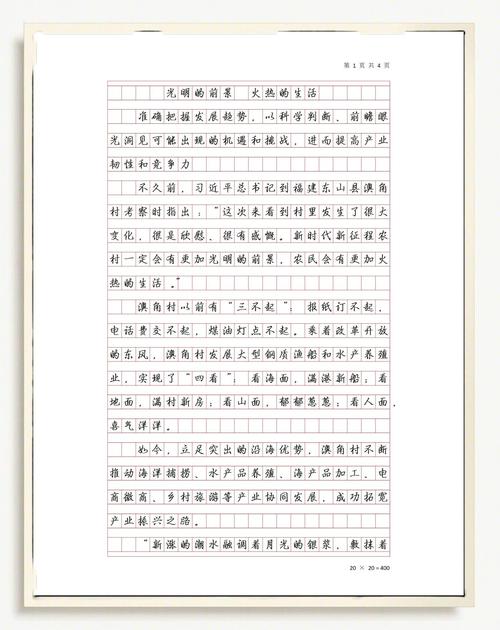 第 1 页 共 4 页
光明的前景 火热的生活
准确把握发展趋势，以科学判断、前瞻眼
光洞见可能出现的机遇和挑战，进而提高产业
韧性和竞争力
不久前，习近平总书记到福建东山县澳角
村考察时指出：“这次来看到村里发生了很大
变化，很是欣慰、很有感慨。新时代新征程农
村一定会有更加光明的前景，农民会有更加火
热的生活。”
澳角村以前有“三不起”：报纸订不起，
电话费交不起，煤油灯点不起。乘着改革开放
的东风，澳角村发展大型钢质渔船和水产养殖
业，实现了“四看”：看海面，满港新船；看
地面，满村新房；看山面，郁郁葱葱；看人面，
喜气洋洋。
如今，立足突出的沿海优势，澳角村不断
推动海洋捕捞、水产品养殖、海产品加工、电
商微商、乡村旅游等产业协同发展，成功拓宽
产业振兴之路。
“新涨的潮水融调着月光的银浆，敷抹着
20 × 20 = 400